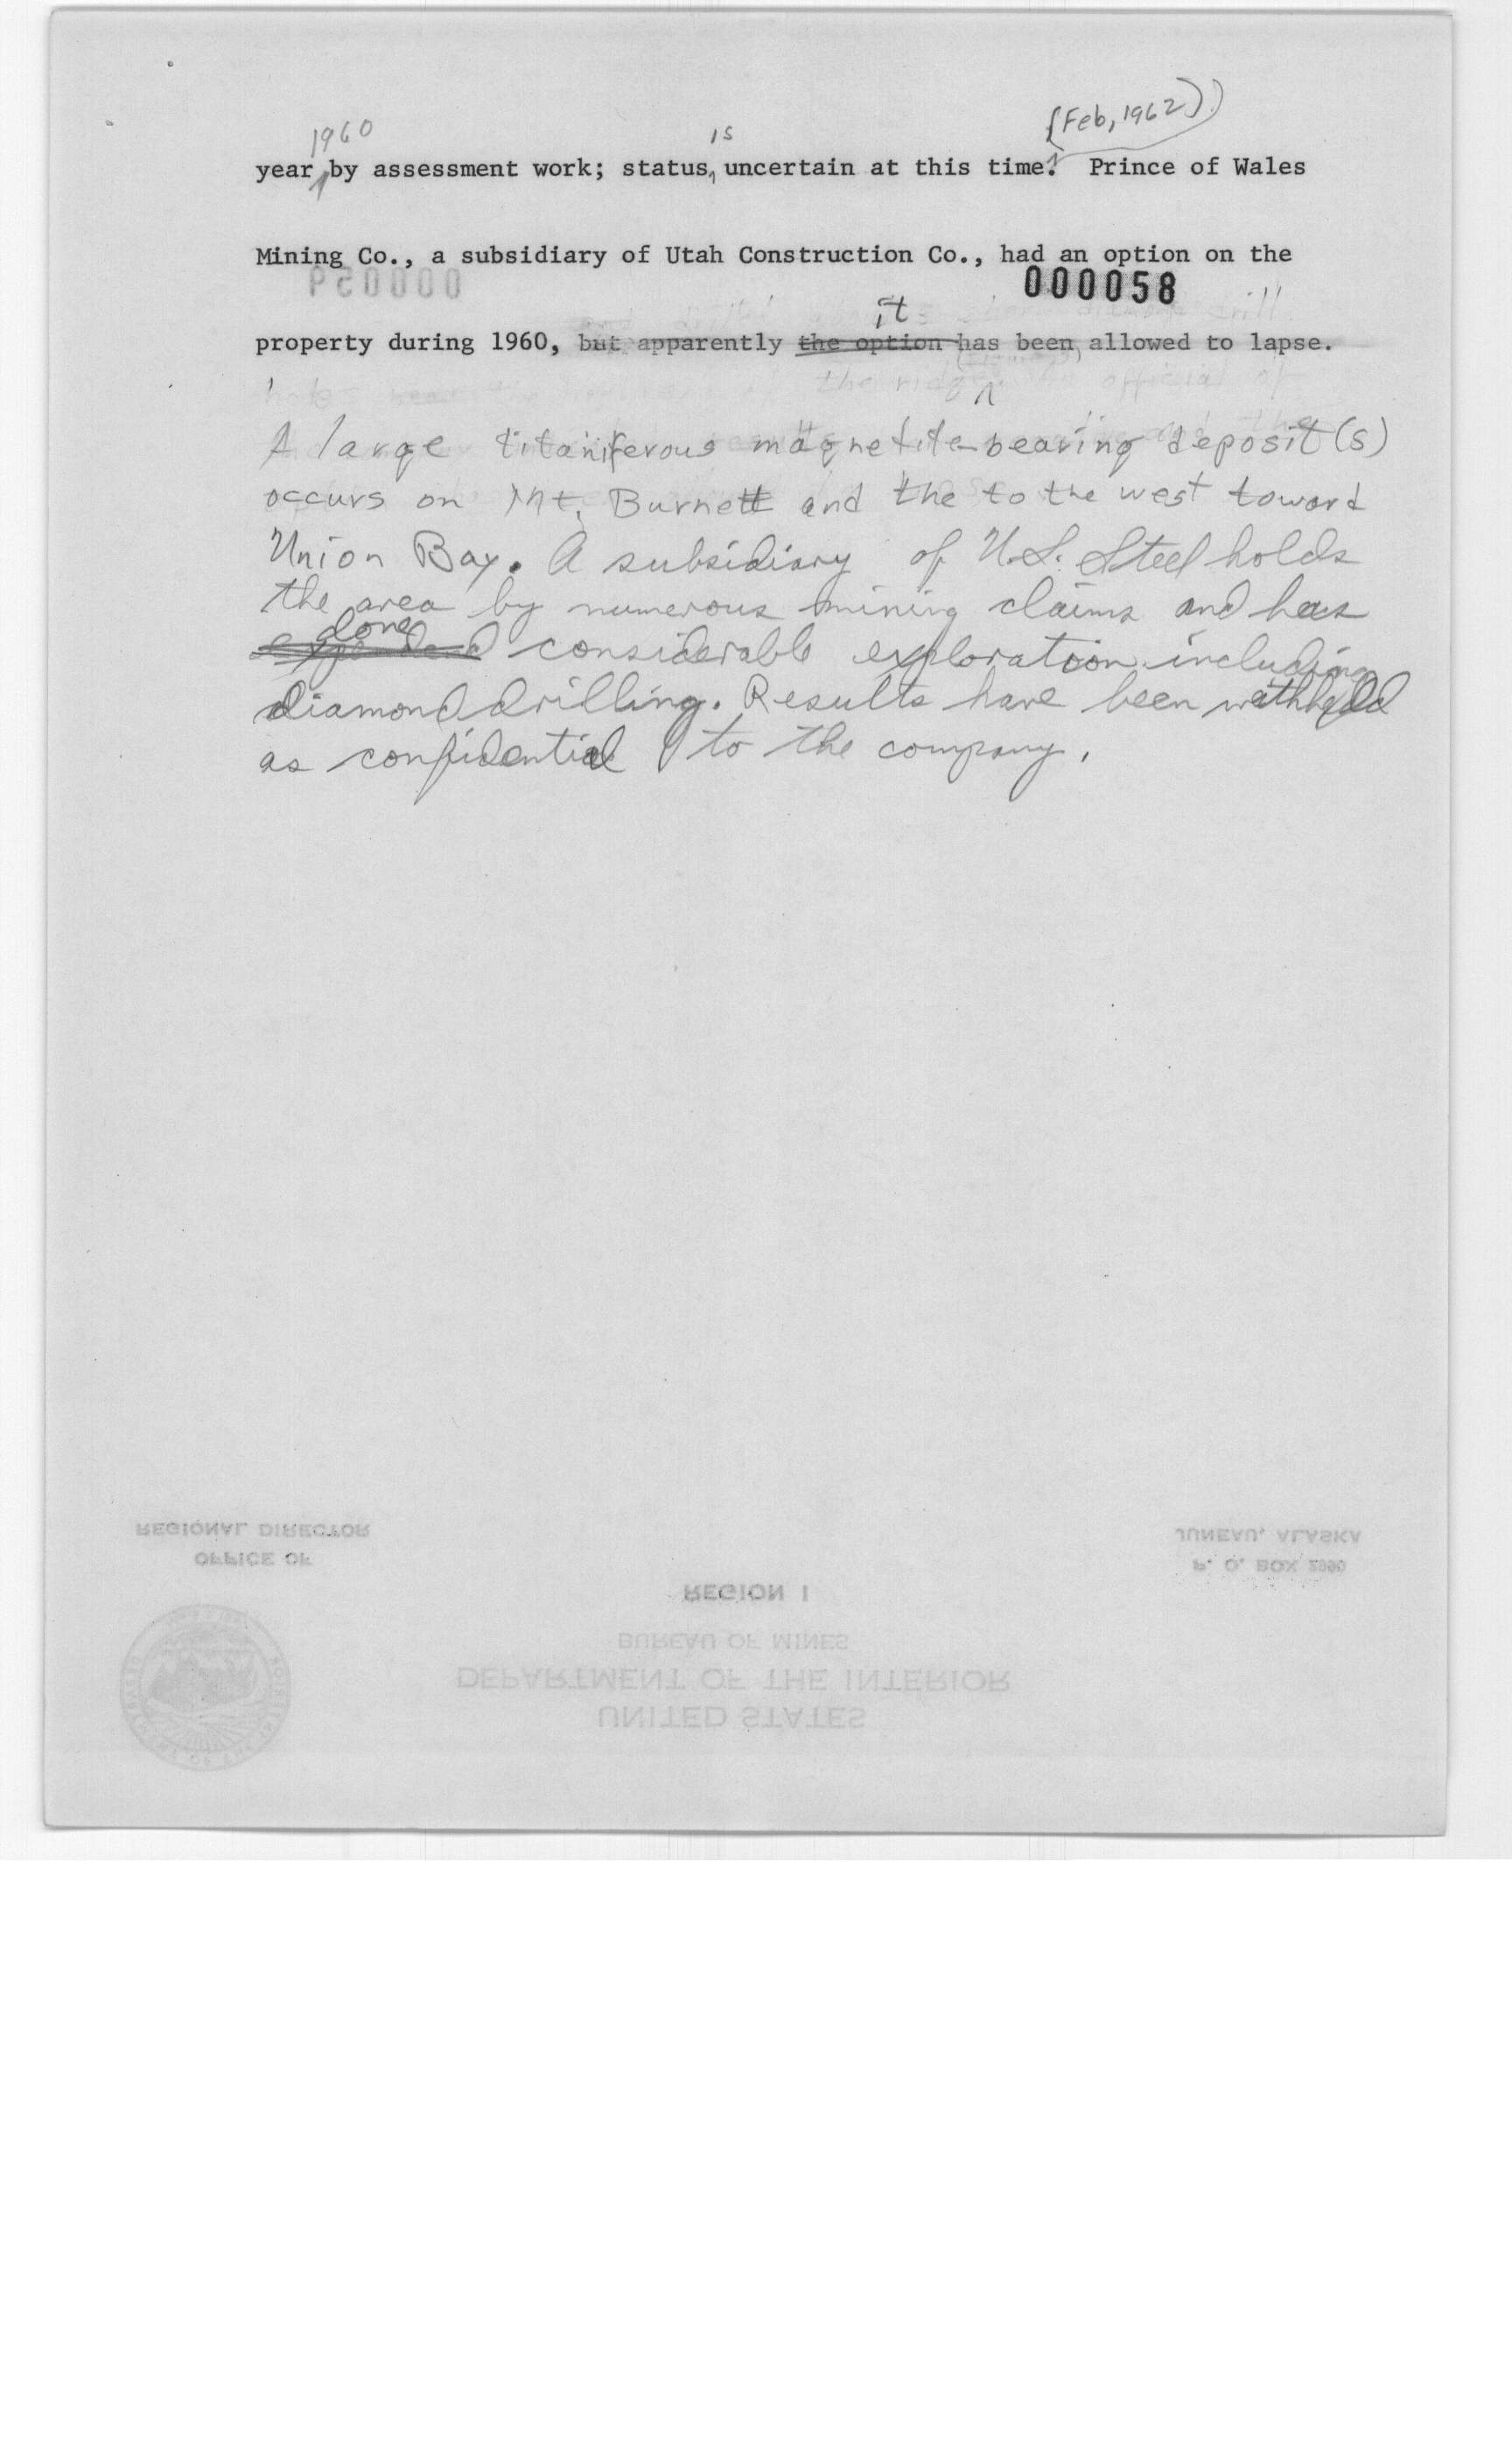 1960
is
(Feb, 1962))
year by assessment work; status, uncertain at this time. Prince of Wales
Mining Co., a subsidiary of Utah Construction Co., had an option on the
000058
it
property during 1960, but apparently the option has been allowed to lapse.
A large titaniferous magnetite-bearing deposit(s)
occurs on Mt. Burnett and the to the west toward
Union Bay. A subsidiary of U.S. Steel holds
the area by numerous mining claims and has
done
considerable exploration including
diamond drilling. Results have been withheld
as confidential to the company.
REGIONAL DIRECTOR
OFFICE OF
JUNEAU, ALASKA
P. O. BOX
REGION I
BUREAU OF MINES
DEPARTMENT OF THE INTERIOR
UNITED STATES